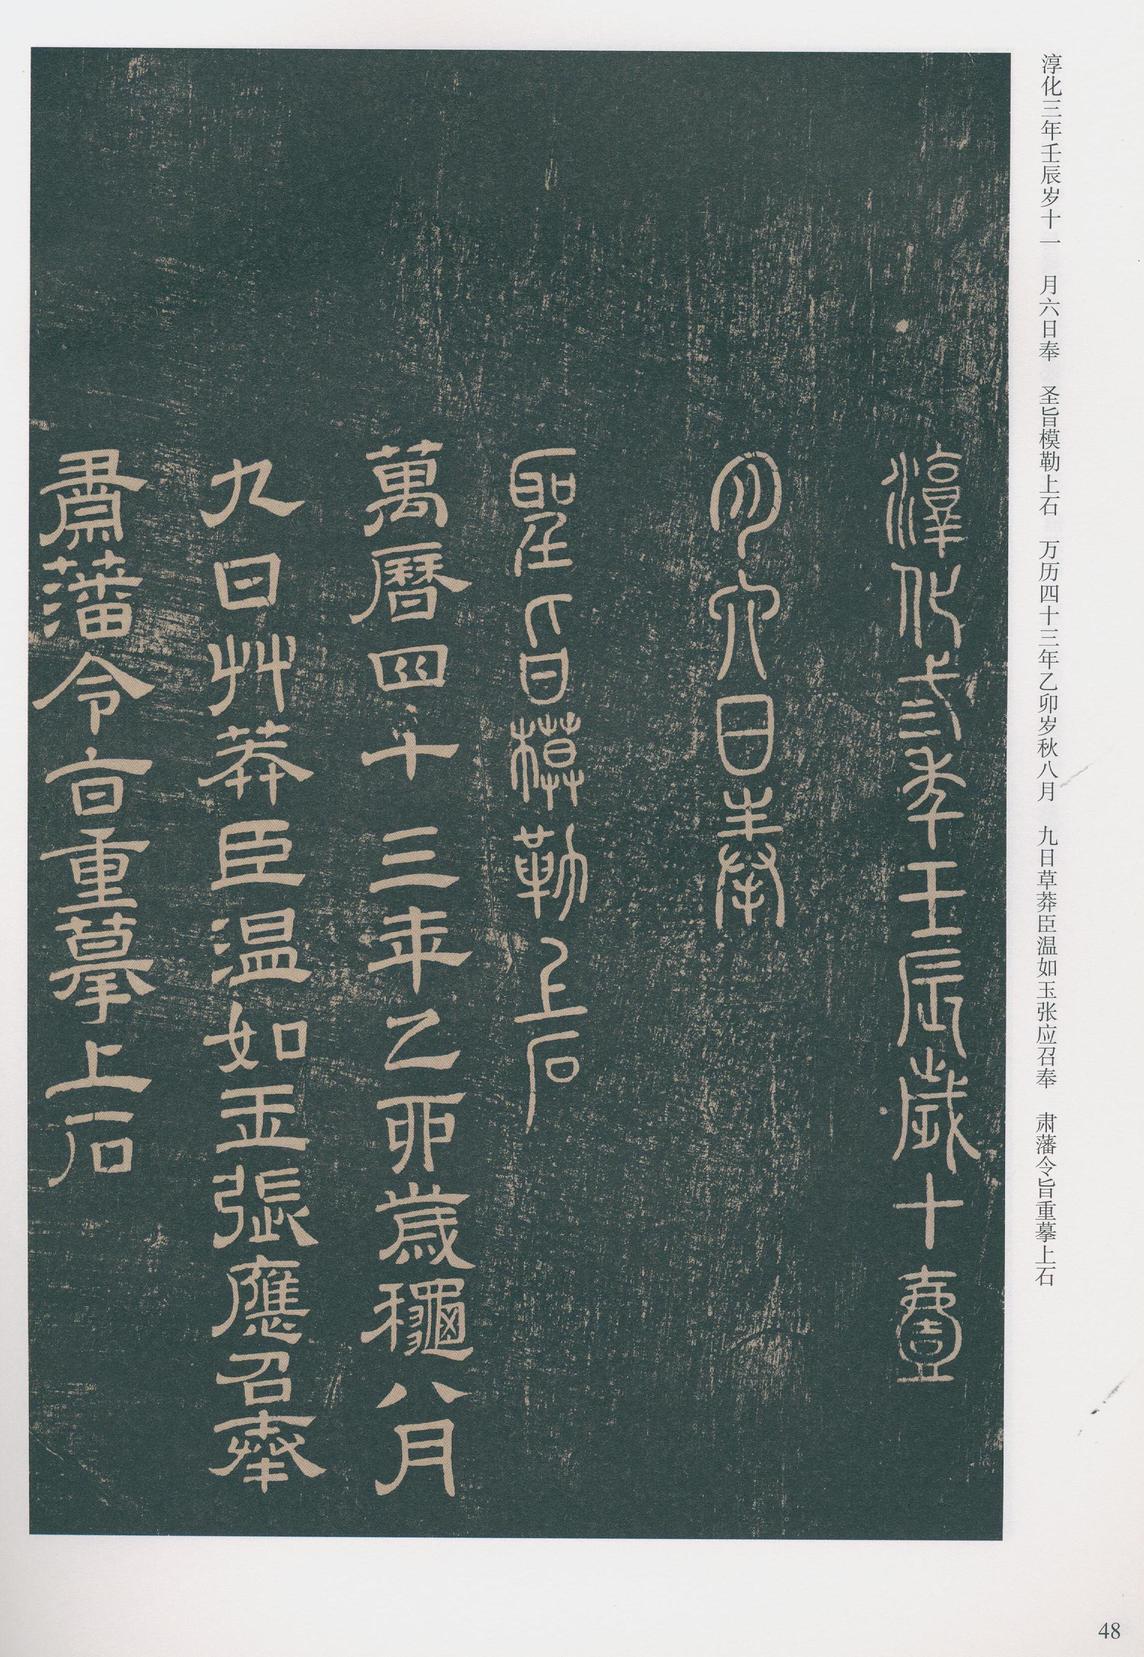 淳化三年壬辰岁十一　月六日奉　圣旨模勒上石　万历四十三年乙卯岁秋八月　九日草莽臣温如玉张应召奉　肃藩令旨重摹上石
淳化弎年壬辰歲十壹
月六日奉
聖旨模勒上石
萬曆四十三年乙卯歲龝八月
九日艸莽臣温如玉張應召奉
肅藩令旨重摹上石
48